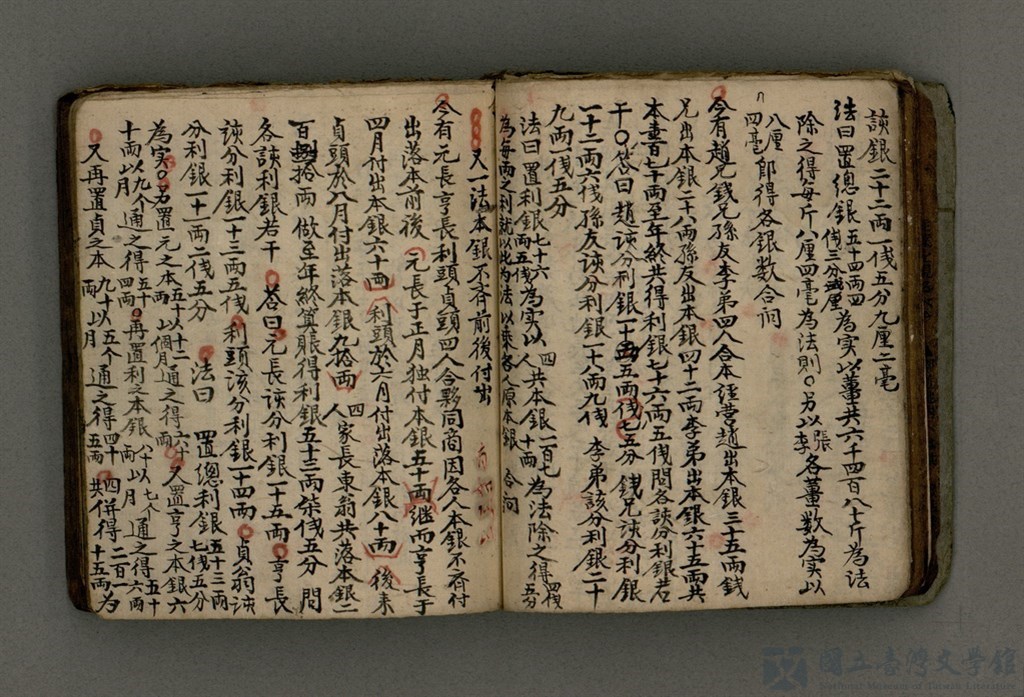 該銀二十二両一伐五分九厘二毫
法曰置總銀五十四両四伐三分二厘為实以薑共六千四百八十斤為法
除之得每斤八厘四毫為法則〇另以張李各薑數為实以
八厘四毫郎得各銀数合问
今有趙兄錢兄孫友李弟四人合本經营趙出本銀三十五両錢
兄出本銀二十八両孫友出本銀四十二両李弟出本銀六十五両共
本壹百七十両至年終共得利銀七十六両五伐問各該分利銀若
干〇答曰趙該分利銀一十五両七伐五分錢兄該分利銀
一十二両六伐孫友該分利銀一十八両九伐 李弟該分利銀二十
九両二伐五分
法曰置利銀七十六両五伐為实以四人共本銀一百七十両為法除之得四伐五分
為每両之利就以此為法以乘各人原本銀 合问
又一法本銀不斉前後付出
今有元長亨長利頭貞頭四人合夥同商因各人本銀不斉付
出落本前後 元長于正月独付本銀五十両継而亨長于
四月付出本銀六十両利頭於六月付出落本銀八十両後来
貞頭於八月付出落本銀九拾両 四人家長東翁共落本銀二
百捌拾両 做至年終算賬得利銀五十三両柒伐五分 問
各該利銀若干 答曰元長該分利銀一十五両亨長
該分利銀一十三両五伐利頭該分利銀一十四両 貞翁该
分利銀一十一両二伐五分 法曰 置總利銀五十三両七伐五分
為实〇另置元之本五十両以十二個月通之得六百両又置亨之本銀六
十両以九个月通之得五百四十両〇再置利之本銀八十両以七个月通之得五百六十両
又再置貞之本九十両以五个月通之得四百五十両四共併得二千一百五十両為
国立臺灣文学館
National Museum of Taiwan Literature